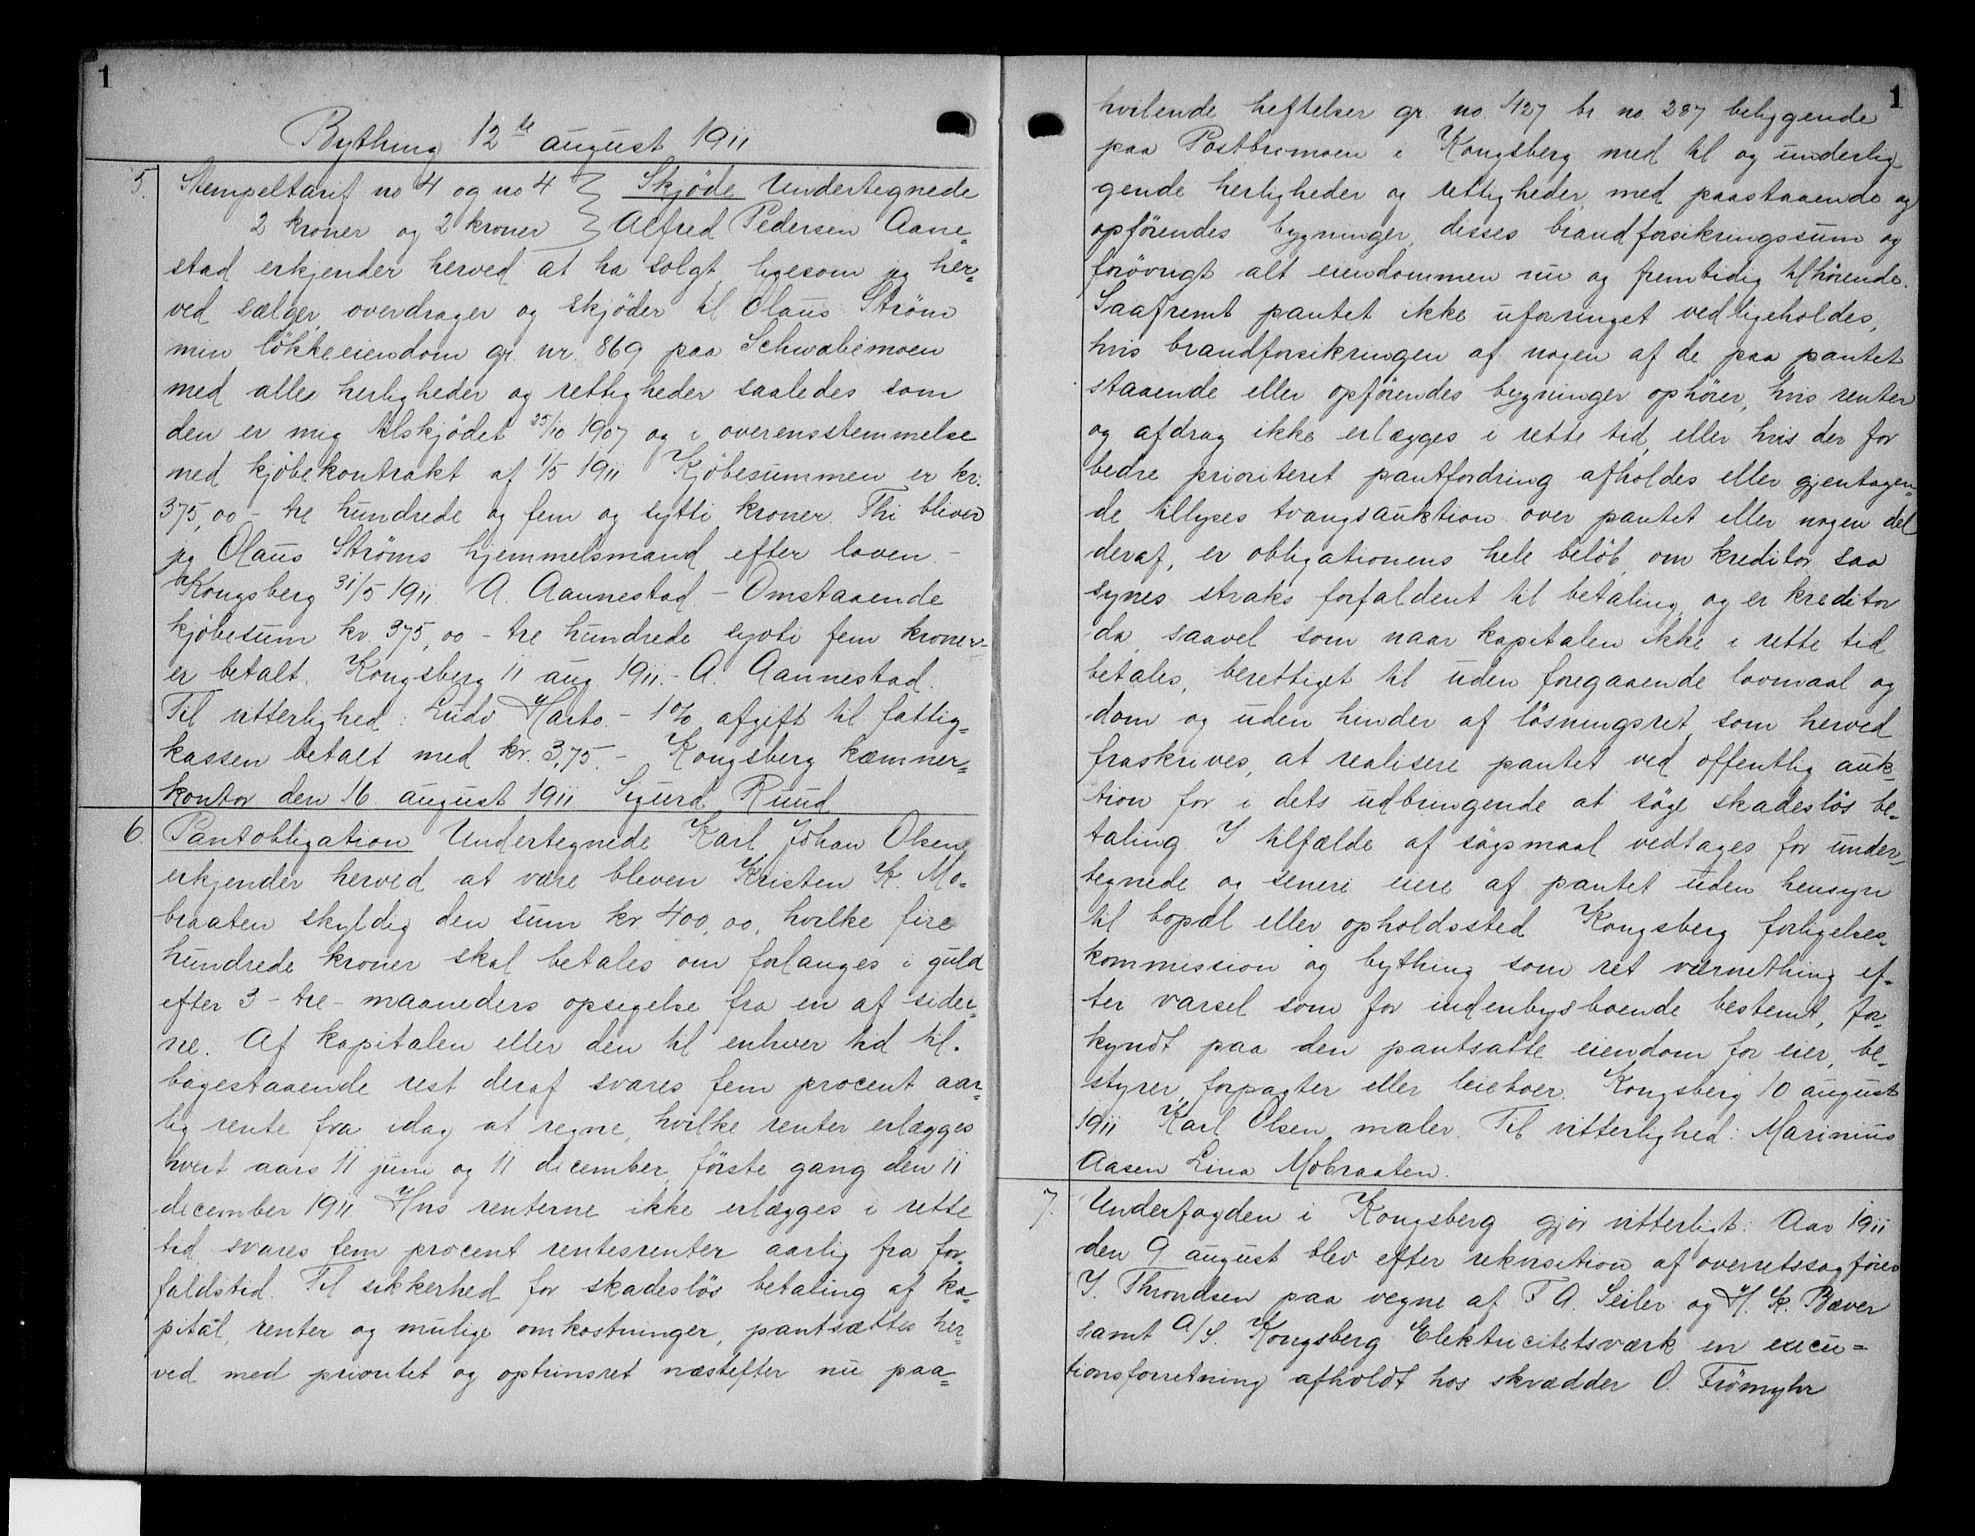 1
Bything 12te august 1911
5. Stempeltarif no 4 og no 4 } Skjöde Undertegnede
2 kroner og 2 kroner } Alfred Pedersen Aane=
stad erkjender herved at ha solgt, ligesom jeg her=
ved sælger, overdrager og skjöder til Olaus Ström
min lökkeeiendom gr. nr. 869 paa Schwabemoen
med alle herligheder og rettigheder saaledes som
den er mig tilskjödet 25/10 1907 og i overensstemmelse
med kjöbekontrakt af 1/5 1911 Kjöbesummen er kr.
375,00 - tre hundrede og fem og sytti kroner. Thi bliver
jeg Olaus Ströms hjemmelsmand efter loven. -
Kongsberg 31/5 1911 A. Aannestad. - Omstaaende
kjöbesum kr. 375,00 - tre hundrede sytti fem kroner -
er betalt. Kongsberg 11 aug. 1911. - A. Aannestad.
Til vitterlighed: Ludv Harbo. - 1 % afgift til fattig=
kassen betalt med kr. 3,75. - Kongsberg kæmner=
kontor den 16. august 1911 Sigurd Ruud
6. Pantobligation Undertegnede Karl Johan Olsen
erkjender herved at være bleven Kristen K. Mo=
braaten skyldig den sum kr. 400,00, hvilke fire
hundrede kroner skal betales om forlanges i guld
efter 3 - tre - maaneders opsigelse fra en af sider=
ne. Af kapitalen eller den til enhver tid til=
bagestaaende rest deraf svares fem procent aar=
lig rente fra idag at regne, hvilke renter erlægges
hvert aars 11 juni og 11 december, förste gang den 11
december 1911 Hvis renterne ikke erlægges i rette
tid, svares fem procent rentesrenter aarlig fra for=
faldstid. Til sikkerhed for skadeslös betaling af ka=
pital, renter og mulige omkostninger, pantsættes her=
ved med prioritet og optrinsret næstefter nu paa=
1
hvilende heftelser gr. no. 427 br. no. 287 beliggende
paa Postbromoen i Kongsberg med til og underlig=
gende herligheder og rettigheder, med paastaaende og
opförendes bygninger, disses brandforsikringssum og
forövrigt alt eiendommen nu og fremtidig tilhörende.
Saafremt pantet ikke uforringet vedligeholdes,
hvis brandforsikringen af nogen af de paa pantet
staaende eller opförendes bygninger ophörer, hvis renter
og afdrag ikke erlægges i rette tid, eller hvis der for
bedre prioriteret pantfordring afholdes eller gjentagen=
de tillyses tvangsauktion over pantet eller nogen del
deraf, er obligationens hele belöb, om kreditor saa
synes straks forfaldent til betaling, og er kreditor
da, saavel som naar kapitalen ikke i rette tid
betales, berettiget til uden foregaaende lovmaal og
dom og uden hinder af lösningsret, som herved
fraskrives, at realisere pantet ved offentlig auk=
tion for i dets udbringende at söge skadeslös be=
taling I tilfælde af sögsmaal vedtages for under=
tegnede og senere eiere af pantet uden hensyn
til bopæl eller opholdssted Kongsberg forligelses=
kommission og bything som ret værnething ef=
ter varsel som for indenbysboende bestemt, for=
kyndt paa den pantsatte eiendom for eier, be=
styrer, forpagter eller leieboer. Kongsberg 10 august
1911 Karl Olsen maler. Til vitterlighed: Marinius
Aasen Lina Mobraaten.
7. Underfogden i Kongsberg gjör vitterligt: Aar 1911
den 9 august blev efter rekvisition af overretssagförer
J. Throndsen paa vegne af F A. Seiler og H. K. Bæver
samt A/S. Kongsberg Elektricitetsværk en execu=
tionsforretning afholdt hos skrædder O. Frömyhr